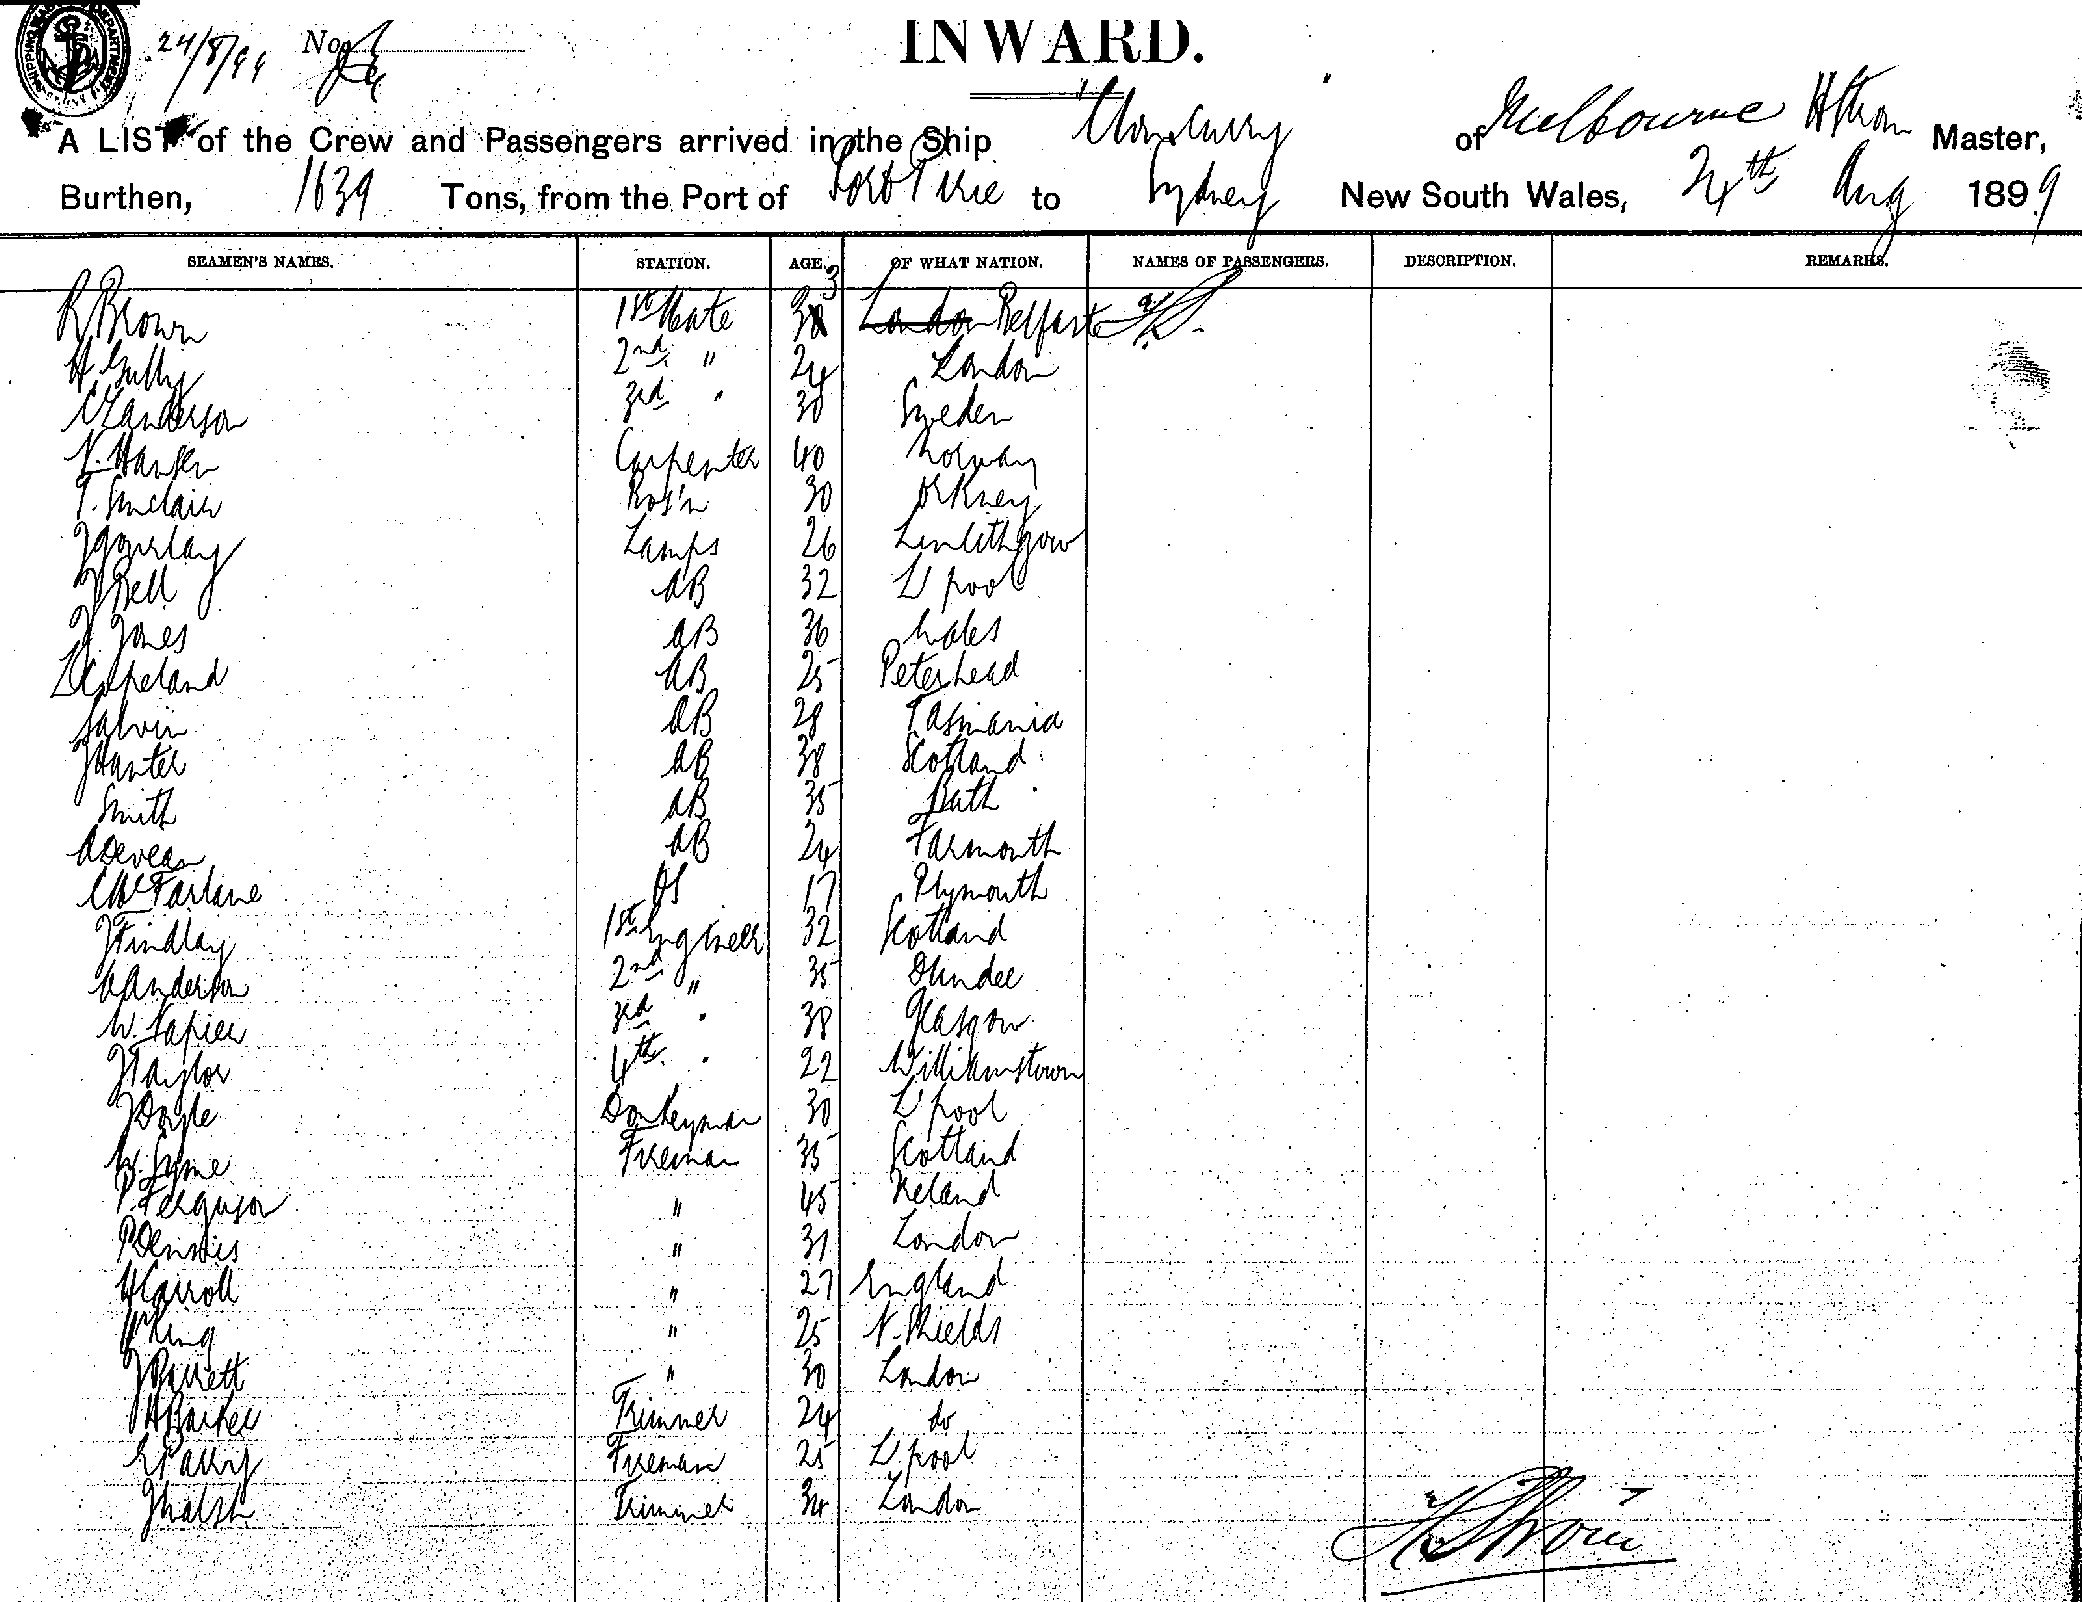 24/8/99 No.
INWARD.
A LIST of the Crew and Passengers arrived in the Ship Cloncurry of Melbourne H Strom Master,
Burthen, 1639 Tons, from the Port of Port Pirie to Sydney New South Wales, 24th Aug 1899
SEAMEN'S NAMES. STATION. AGE. OF WHAT NATION. NAMES OF PASSENGERS. DESCRIPTION. REMARKS.
R Brown 1st Mate 33 London Belfast HS.
H Gully 2nd " 24 London
Anderson 3rd " 30 Sweden
N. Hansen Carpenter 40 Norway
T. Sinclair Bos'n 30 Orkney
J Gourlay Lamps 26 Linlithgow
J Bell AB 32 L'pool
J. Jones AB 36 Wales
Copeland AB 25 Peterhead
Galvin AB 28 Tasmania
J Hunter AB 38 Scotland
Smith AB 35 Bath
AB 24 Yarmouth
C McFarlane OS 17 Plymouth
J Findlay 1st Engineer 32 Scotland
A Anderson 2nd " 35 Dundee
W. Napier 3rd " 38 Glasgow
J Taylor 4th " 22 Williamstown
J Doyle Donkeyman 30 L'pool
W. Syme Fireman 35 Scotland
P. Ferguson " 45 Ireland
P Dennis " 31 London
H Carroll " 27 England
W King " 25 N. Shields
J Barrett " 30 London
H Barker Trimmer 24 do
E Parry Fireman 25 L'pool
J Walsh Trimmer 34 London
H Strom